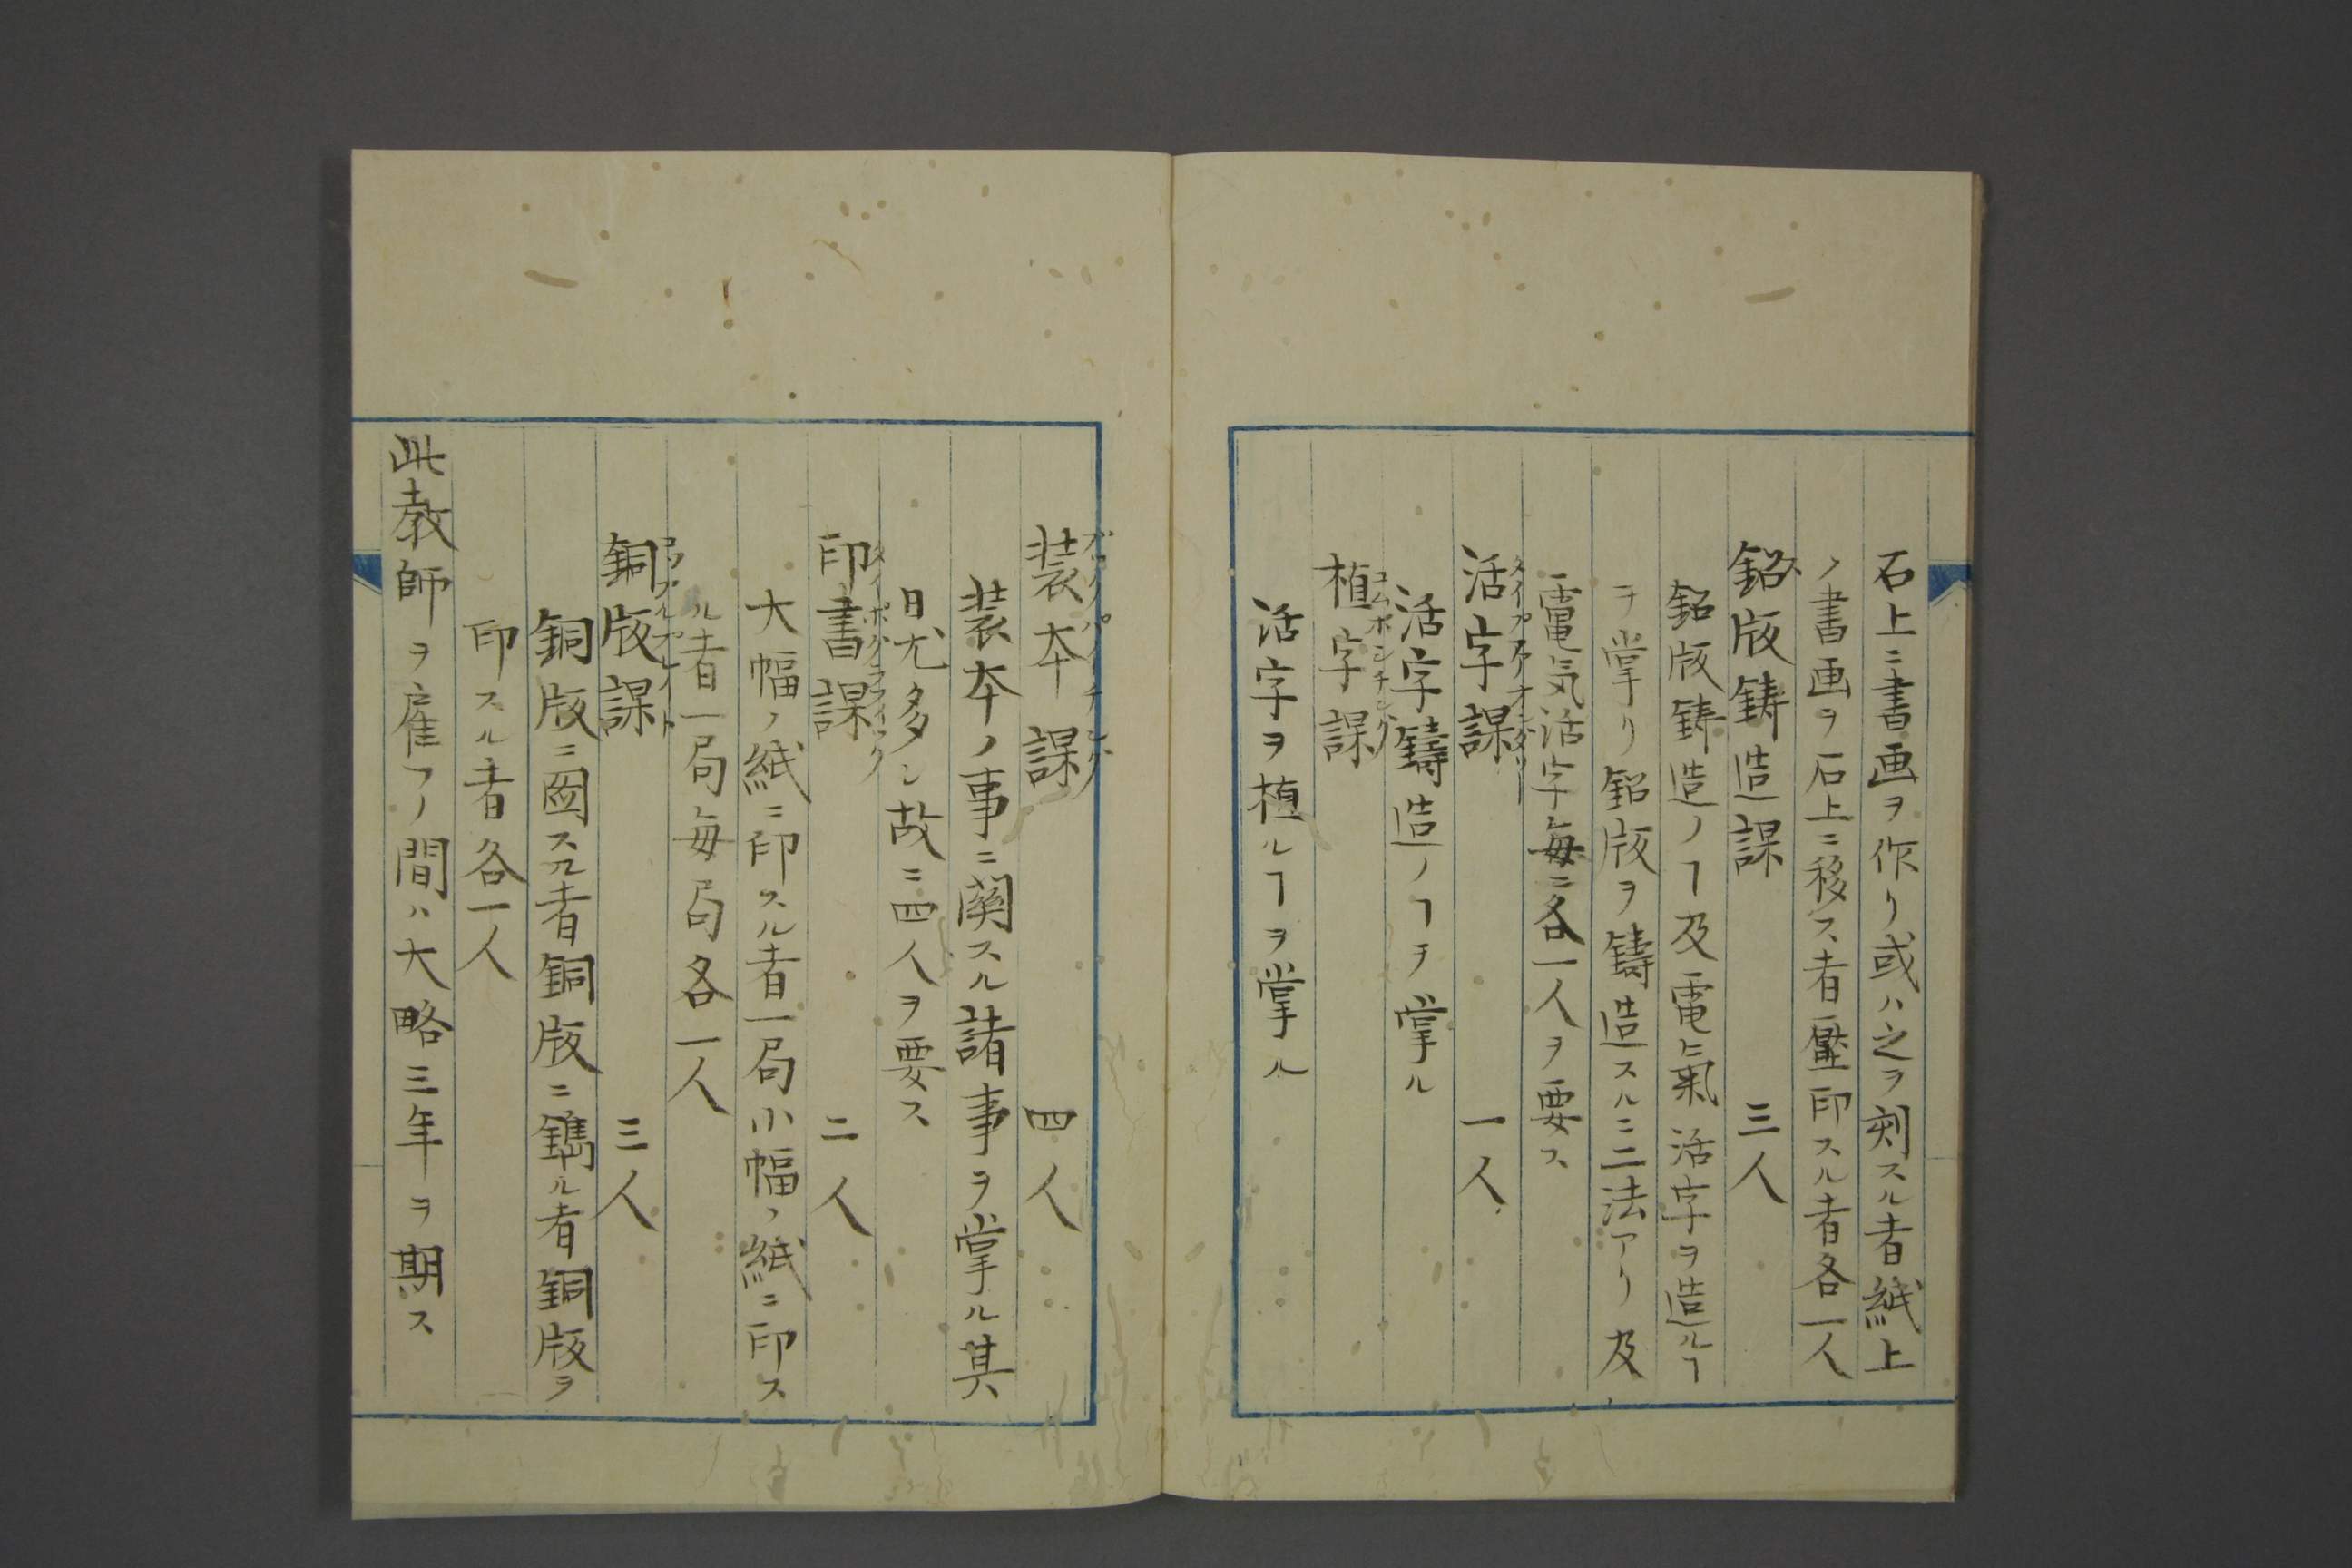 石上ニ書画ヲ作リ或ハ之ヲ刻スル者紙上
ノ書画ヲ石上ニ移ス者壓印スル者各一人
鉛版鋳造課 三人
鉛版鋳造ノヿ及電氣活字ヲ造ルヿ
ヲ掌リ鉛版ヲ鑄造スルニ二法アリ及
電気活字毎ニ各一人ヲ要ス
活字課 一人
活字鑄造ノヿヲ掌ル
植字課
コムポシチング
活字ヲ植ルヿヲ掌ル
装本課 四人
装本ノ事ニ関スル諸事ヲ掌ル其
日尤多シ故ニ四人ヲ要ス
印書課 二人
大幅ノ紙ニ印スル者一局小幅ノ紙ニ印ス
ル者一局毎局各一人
銅版課 三人
銅版ニ圖スル者銅版ニ鐫ル者銅版ヲ
印スル者各一人
此教師ヲ雇フノ間ハ大略三年ヲ期ス